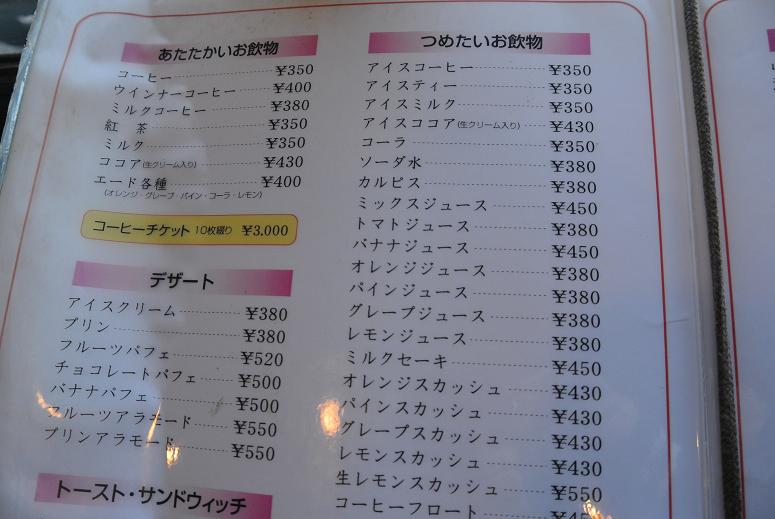 あたたかいお飲物
コーヒー ¥350
ウインナーコーヒー ¥400
ミルクコーヒー ¥380
紅 茶 ¥350
ミルク ¥350
ココア(生クリーム入り) ¥430
エード各種 ¥400
(オレンジ・グレープ・パイン・コーラ・レモン)
コーヒーチケット 10枚綴り ¥3,000
デザート
アイスクリーム ¥380
プリン ¥380
フルーツパフェ ¥520
チョコレートパフェ ¥500
バナナパフェ ¥500
フルーツアラモード ¥550
プリンアラモード ¥550
トースト・サンドウィッチ
つめたいお飲物
アイスコーヒー ¥350
アイスティー ¥350
アイスミルク ¥350
アイスココア(生クリーム入り) ¥430
コーラ ¥350
ソーダ水 ¥380
カルピス ¥380
ミックスジュース ¥450
トマトジュース ¥380
バナナジュース ¥450
オレンジジュース ¥380
パインジュース ¥380
グレープジュース ¥380
レモンジュース ¥380
ミルクセーキ ¥450
オレンジスカッシュ ¥430
パインスカッシュ ¥430
グレープスカッシュ ¥430
レモンスカッシュ ¥430
生レモンスカッシュ ¥550
コーヒーフロート